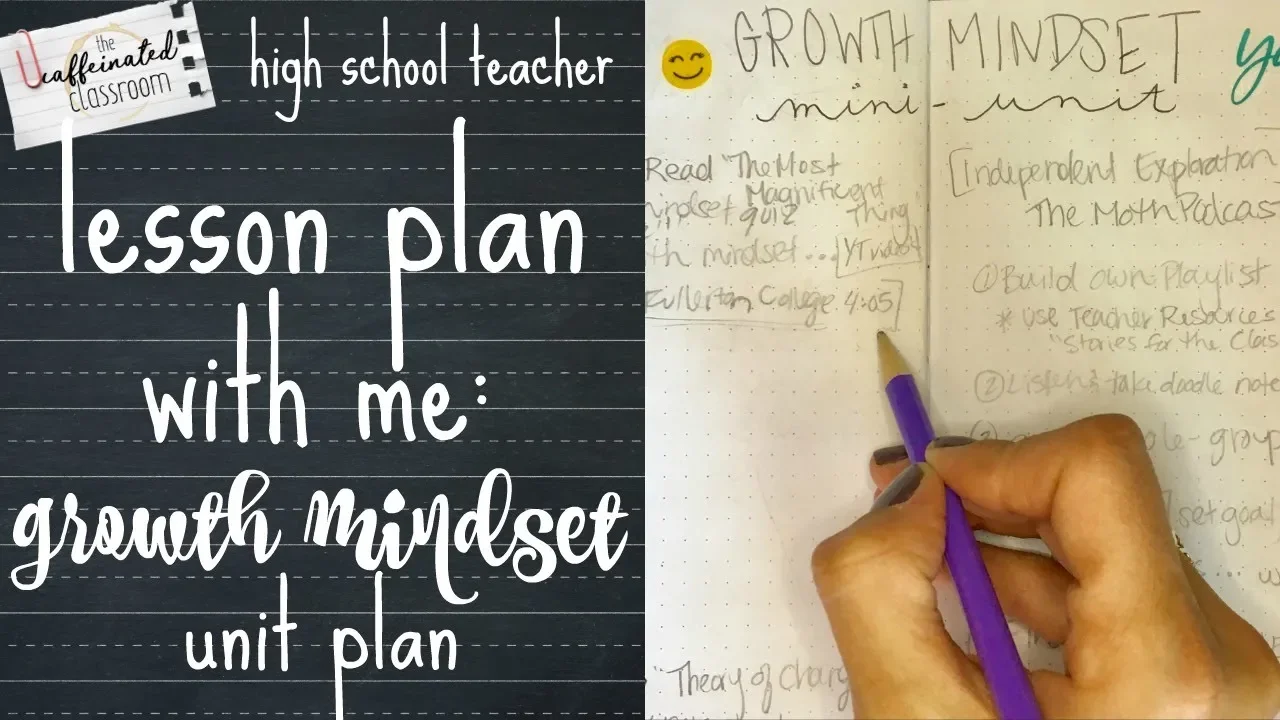 the
caffeinated
classroom
high school teacher
lesson plan
with me:
growth mindset
unit plan
GROWTH MINDSET
mini-unit
Read "The Most
Magnificent
mindset quiz Thing
mindset... [YT video]
Fullerton College 4:05]
"Theory of
[Independent Exploration
The Moth Podcas
① Build own Playlist
* Use Teacher Resources
"Stories for the Clas
② Listen & take doodle note
group
set goal